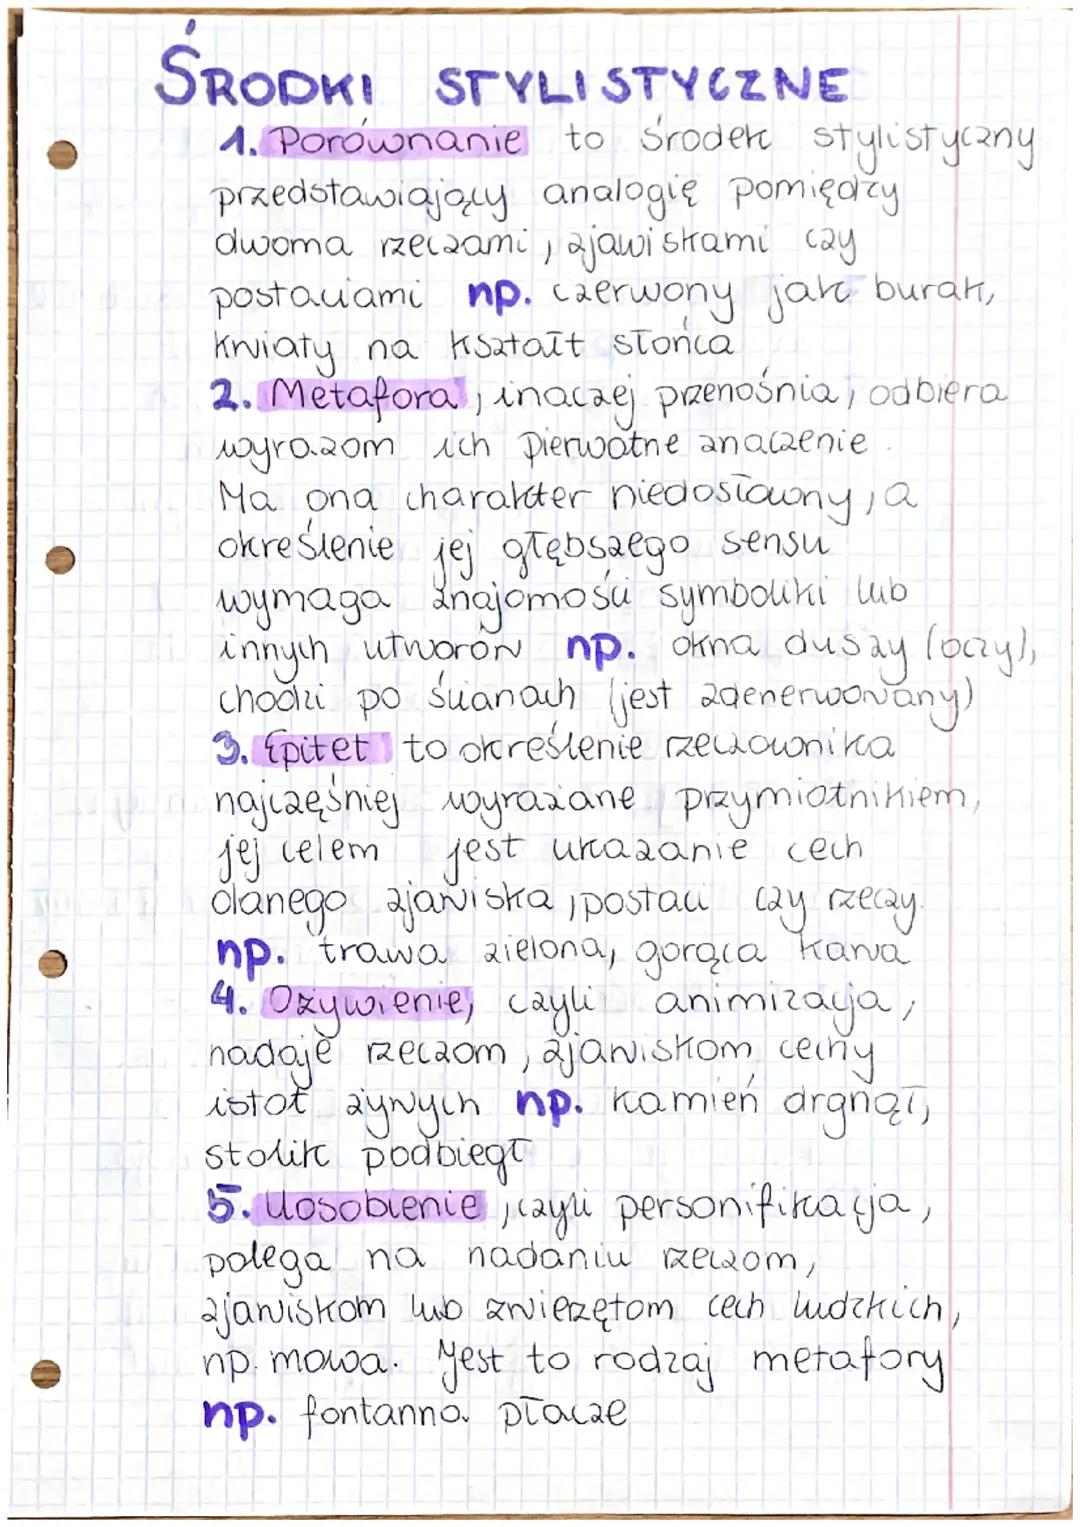 ŚRODKI STYLISTYCZNE
1. Porównanie to środek stylistyczny
przedstawiający analogię pomiędzy
dwoma rzeczami, zjawiskami czy
postaciami np. czerwony jak burak,
kwiaty na kształt słońca
2. Metafora, inaczej przenośnia, odbiera
wyrazom ich pierwotne znaczenie.
Ma ona charakter niedosłowny, a
określenie jej głębszego sensu
wymaga znajomości symboliki lub
innych utworów np. okna duszy (oczy),
chodzi po ścianach (jest zdenerwowany)
3. Epitet to określenie rzeczownika
najczęśniej wyrażane przymiotnikiem,
jej celem jest ukazanie cech
danego zjawiska, postaci czy rzeczy.
np. trawa zielona, gorąca kawa
4. Ożywienie, czyli animizacja,
nadaje rzeczom, zjawiskom cechy
istot żywych np. kamień drgnął,
stolik podbiegł
5. Uosobienie, czyli personifikacja,
polega na nadaniu rzeczom,
zjawiskom lub zwierzętom cech ludzkich,
np. mowa. Jest to rodzaj metafory
np. fontanna płacze